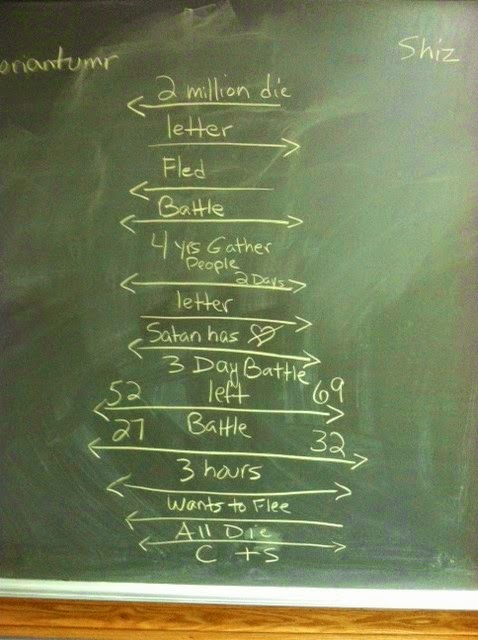 oriantumr Shiz
2 million die
letter
Fled
Battle
4 yrs Gather
People
2 Days
letter
Satan has ♡
3 Day Battle
52 left 69
27 Battle 32
3 hours
Wants to Flee
All Die
C + S